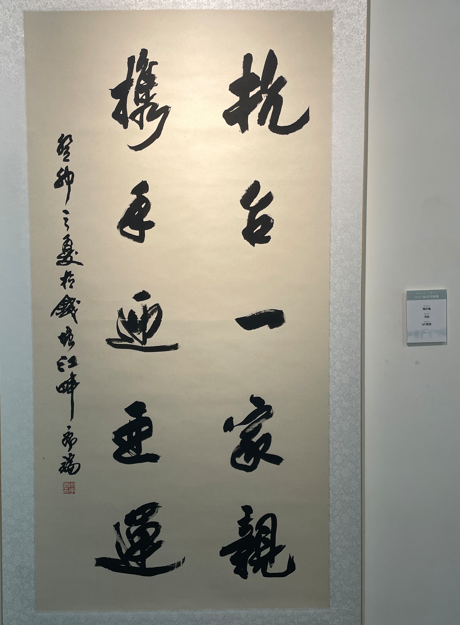 杭台一家親
攜手迎亞運
癸卯之夏於錢塘江畔